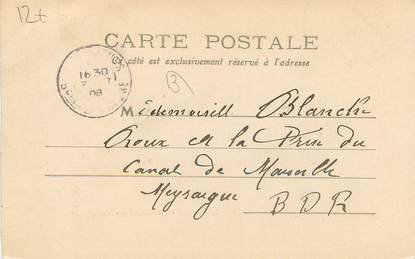 12+
CARTE POSTALE
côté est exclusivement réservé à l'adresse
16 30
08
Mademoiselle Blanche
Roux à la Prise du
Canal de Marseille
Meyrargue
B D R